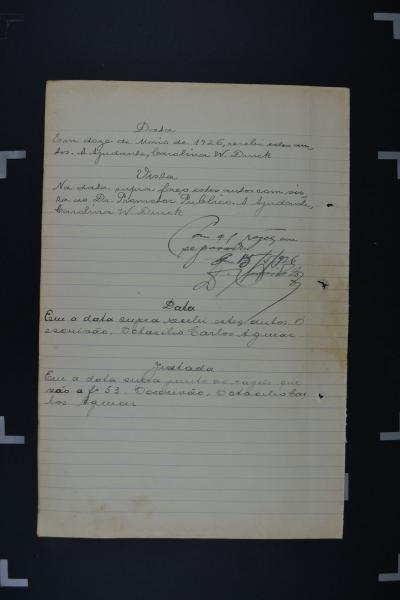 Data
Em doze de Maio de 1926, recebi estes au-
tos. A Ajudante, Carolina W. Durck
Vista
Na data supra faço estes autos com vis-
ta ao Dr. Promotor Publico. A Ajudante,
Carolina W. Durck
Com as razões em
separado.
Em 15 1926
Data
Em a data supra recebi estes autos. O
escrivão, Octacilio Carlos Aguiar
Juntada
Em a data supra junto as razões que
vão a fs 53. O escrivão, Octacilio Car
los Aguiar